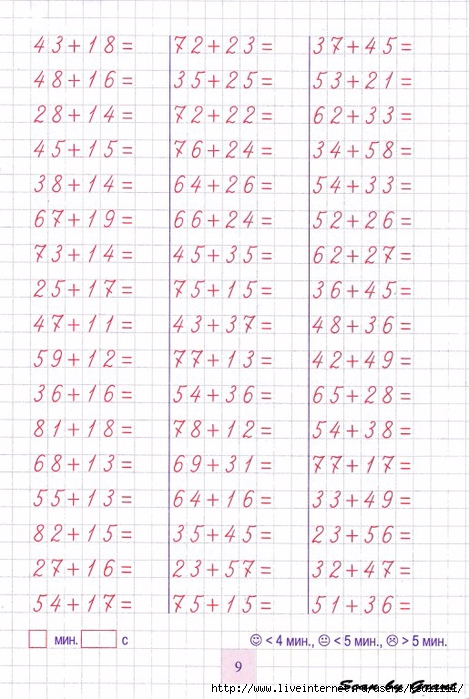 43+18= 72+23= 37+45=
48+16= 35+25= 53+21=
28+14= 72+22= 62+33=
45+15= 76+24= 34+58=
38+14= 64+26= 54+33=
67+19= 66+24= 52+26=
73+14= 45+35= 62+27=
25+17= 75+15= 36+45=
47+11= 43+37= 48+36=
59+12= 77+13= 42+49=
36+16= 54+36= 65+28=
81+18= 78+12= 54+38=
68+13= 69+31= 77+17=
55+13= 64+16= 33+49=
82+15= 35+45= 23+56=
27+16= 23+57= 32+47=
54+17= 75+15= 51+36=
мин. с ☺ < 4 мин., 😐 < 5 мин., ☹ > 5 мин.
9
Scan by
http://www.liveinternet.ru/users/